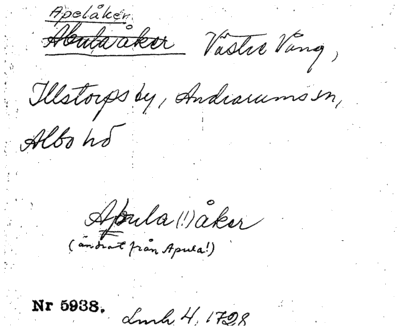 Apelåker.
Abulaåker Västre Vång,
Illstorps by, Andrarums sn,
Albo hd
Abula (!) åker
(ändrat från Apula!)
Nr 5938. Lmh 4, 1728